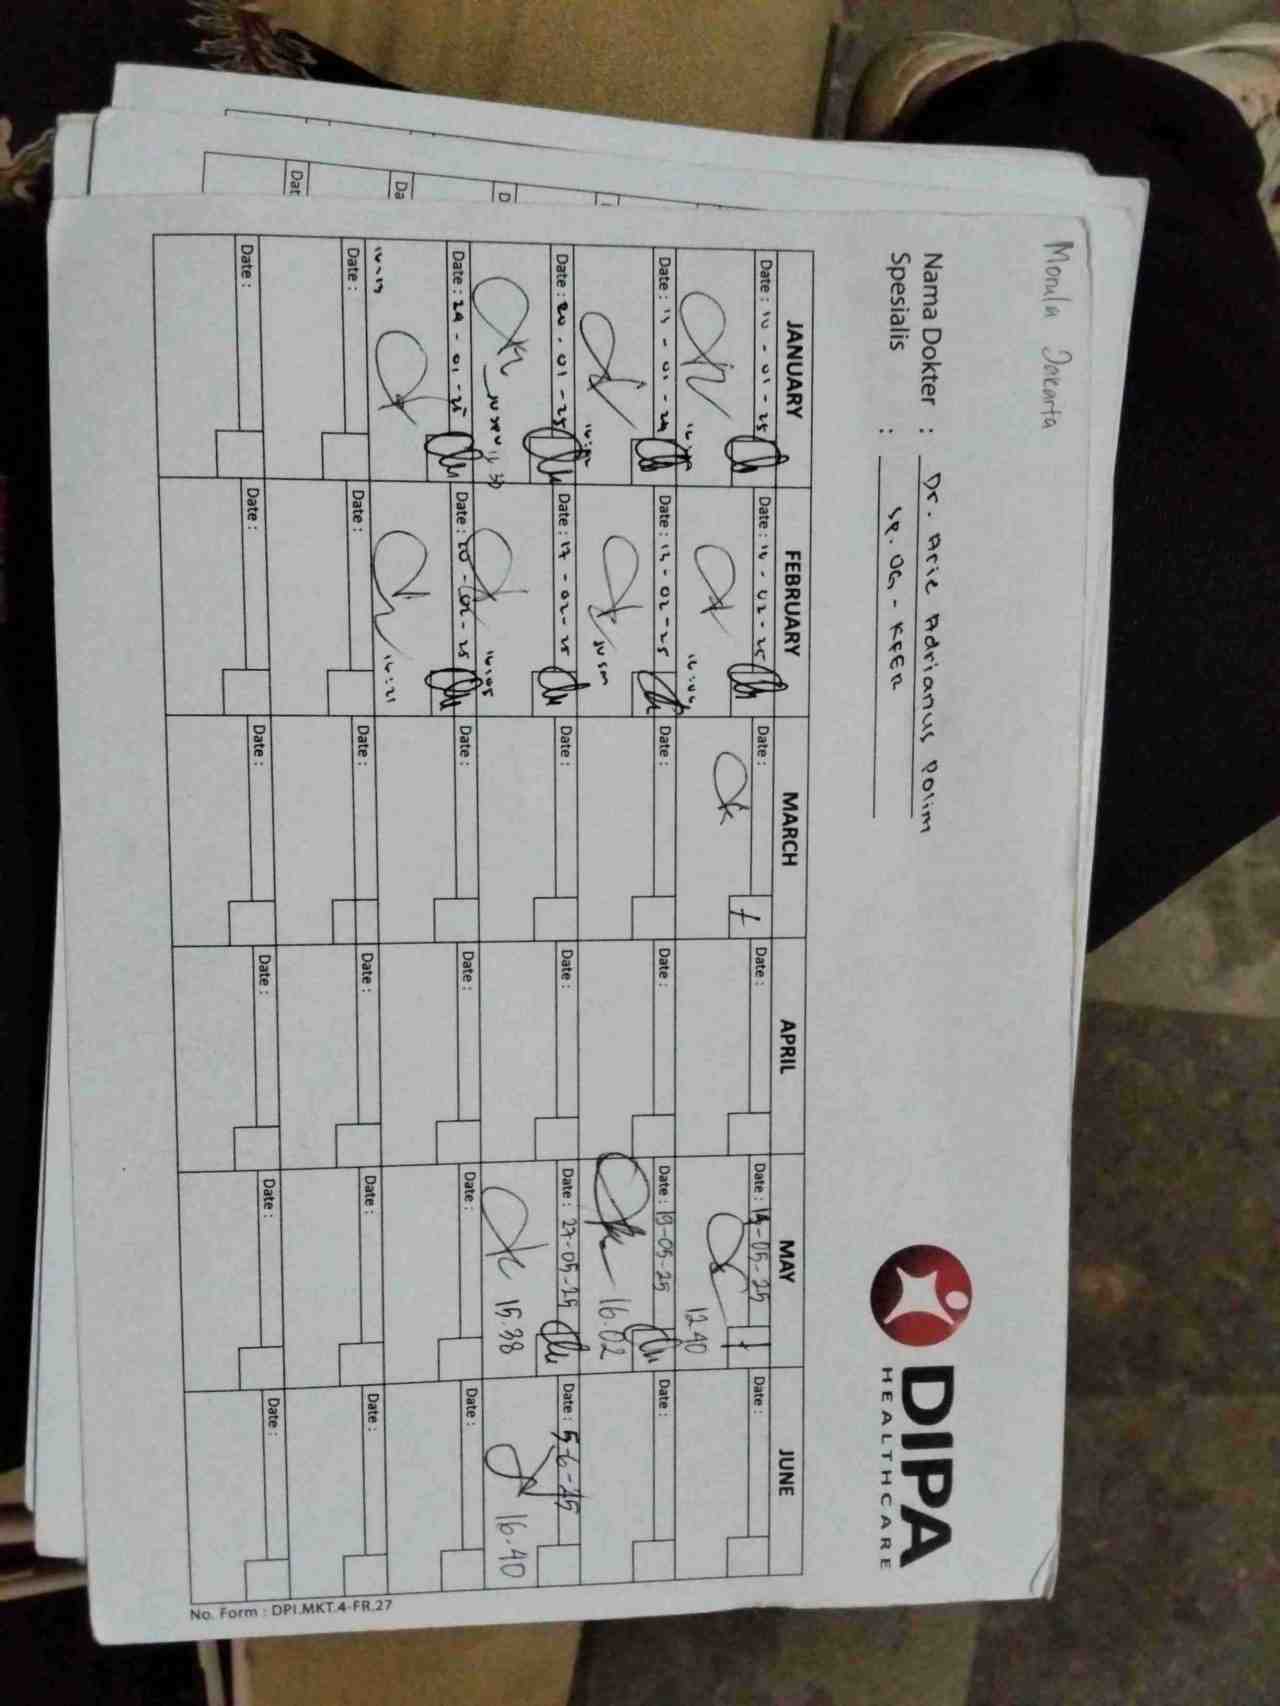 Morula Jakarta
DIPA
HEALTHCARE
Nama Dokter : Dr. Arie Adrianus Polim
Spesialis : SP. OG - KFER
JANUARY FEBRUARY MARCH APRIL MAY JUNE
Date : 10 - 01 - 25 Date : 10 - 02 - 25 Date : Date : Date : 14-05-25 Date :
16:06 12.40
Date : 13 - 01 - 24 Date : 13 - 02 - 25 Date : Date : Date : 19-05-25 Date :
16:02 16.02
Date : 20 - 01 - 25 Date : 17 - 02 - 25 Date : Date : Date : 27-05-25 Date : 5-6-25
16:05 15.38 16.40
Date : 24 - 01 - 25 Date : 20 - 02 - 25 Date : Date : Date : Date :
16:13 16:21
Date : Date : Date : Date : Date : Date :
Date : Date : Date : Date : Date : Date :
No. Form : DPI.MKT.4-FR.27
Dat Da D